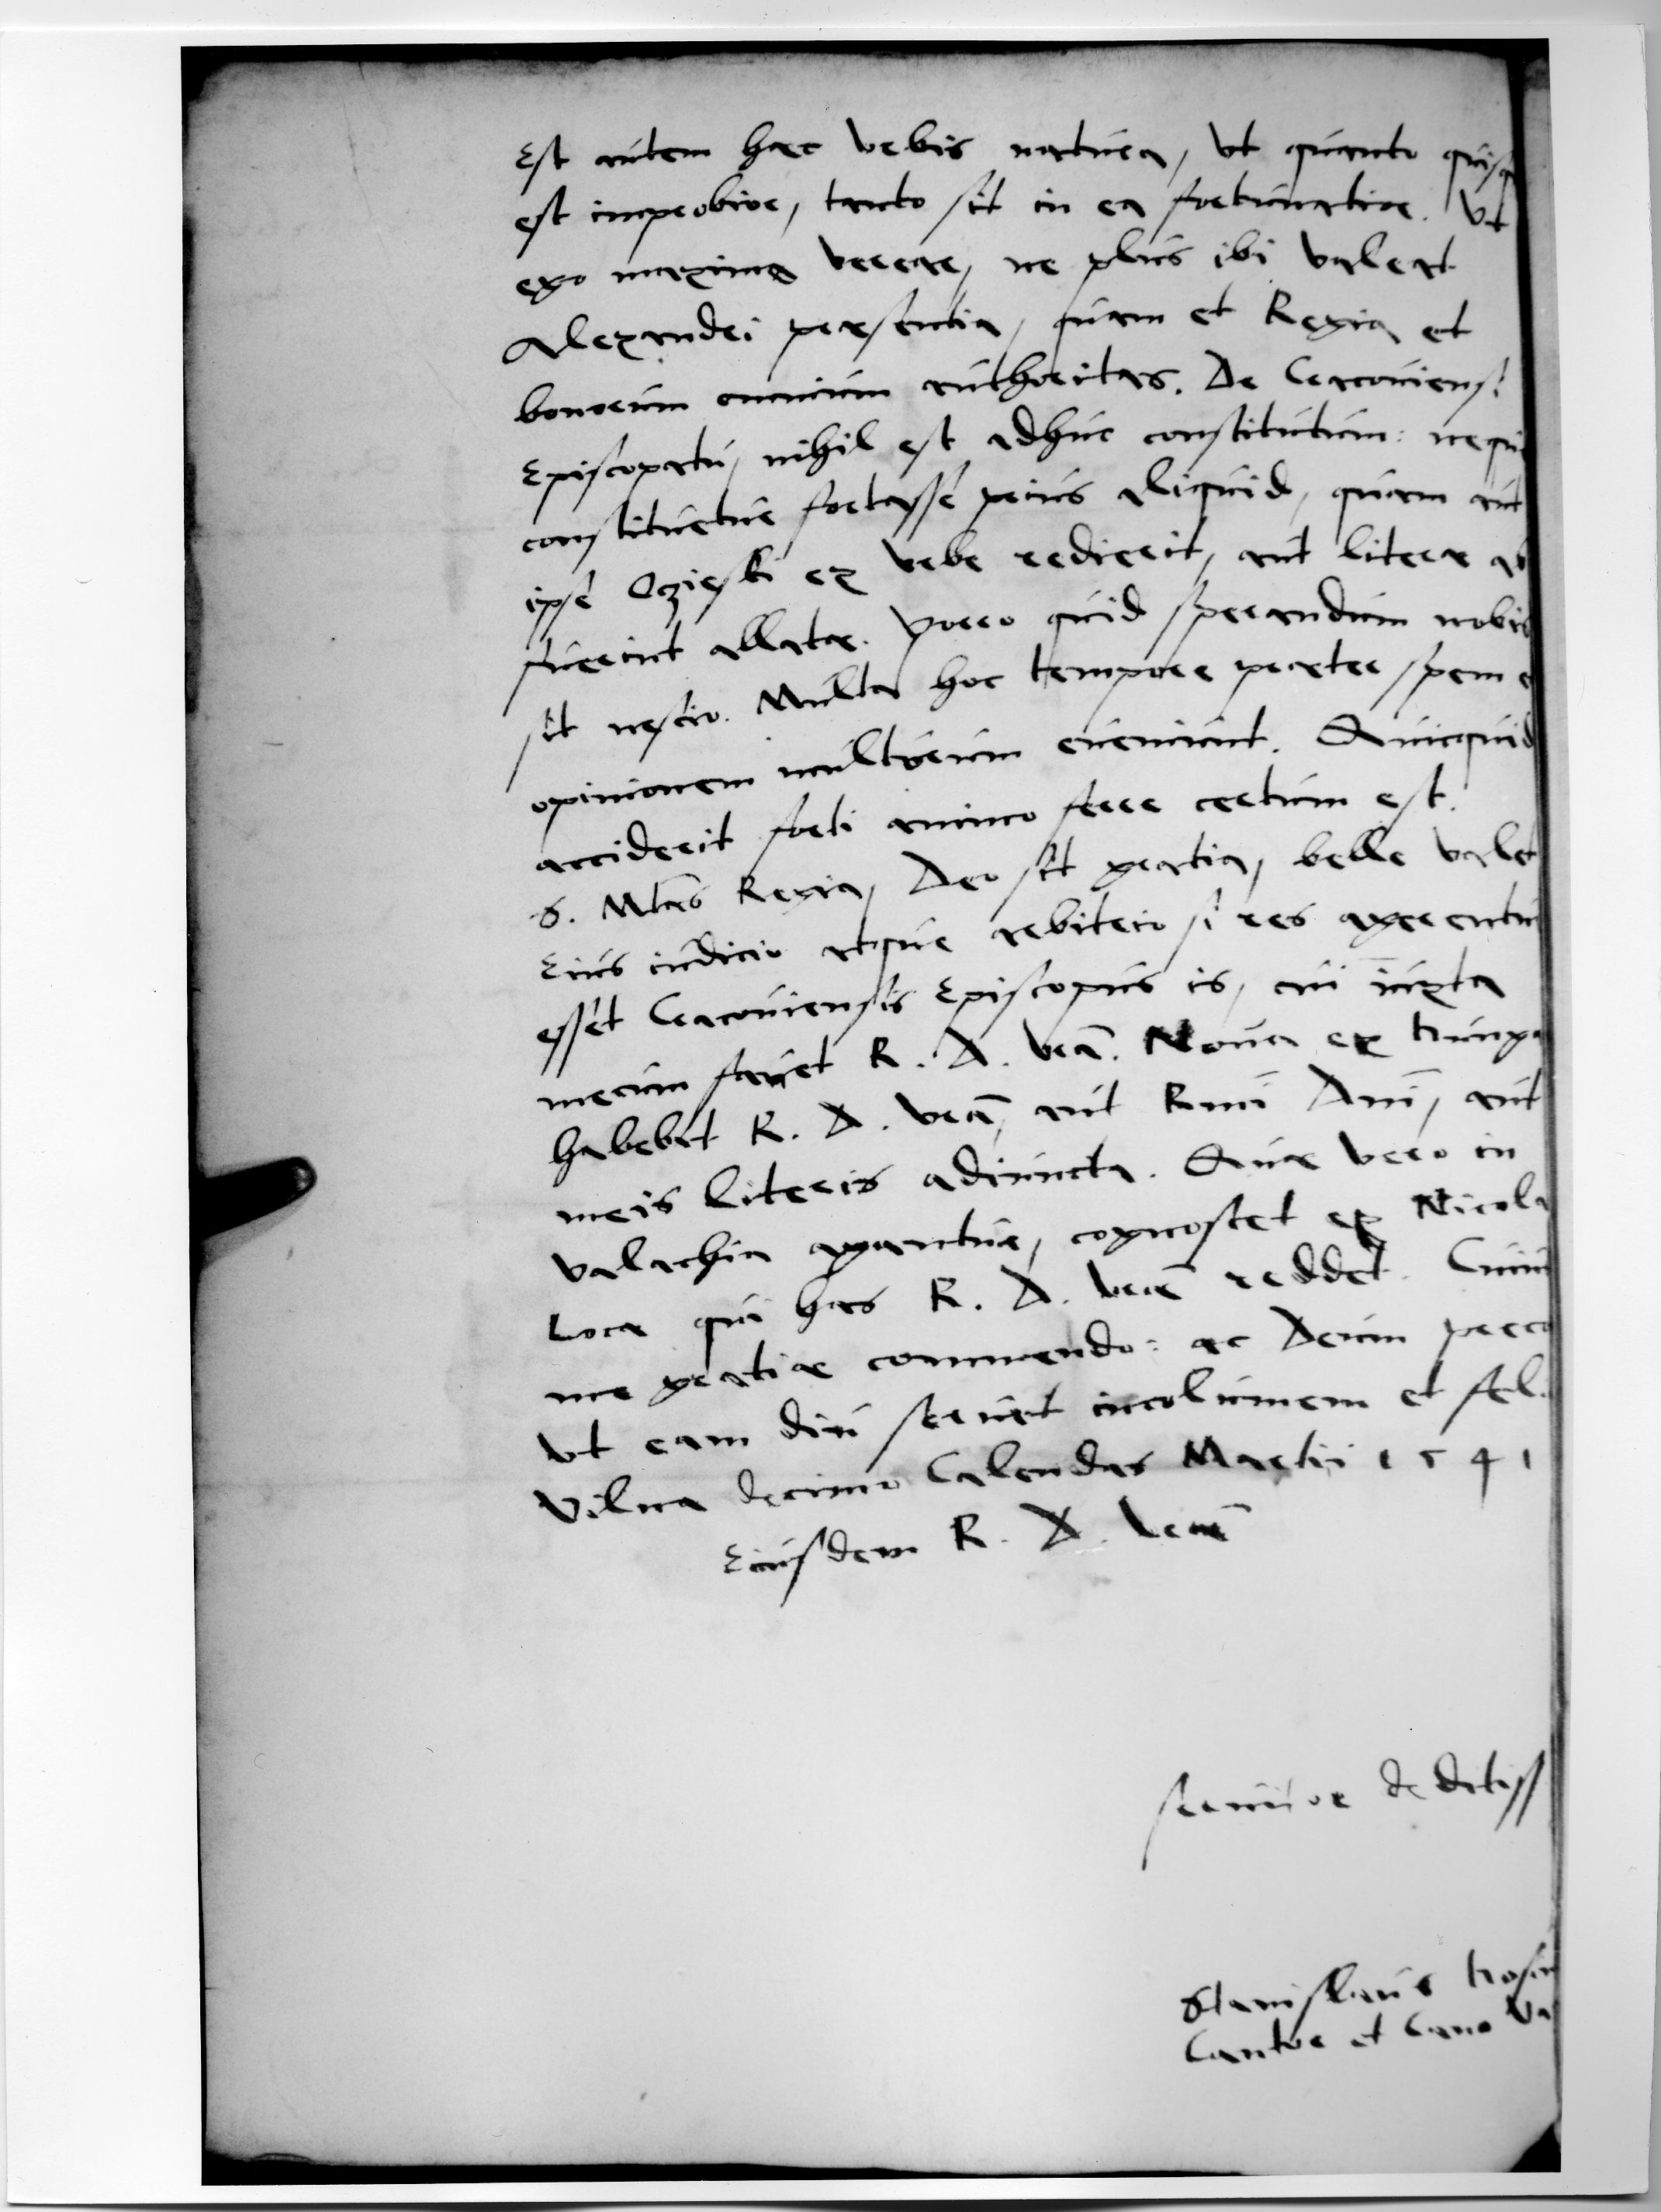 Est autem haec vrbis natura, vt quanto quisq
est improbior, tanto sit in ea fortunatior. Vt
ego maxima verear, ne plus ibi valeat
Alexandri praesentia, quam et Regia et
bonorum omnium authoritas. De Cracouiensi
Episcopatu, nihil est adhuc constitutum: nequ
constituetur fortasse prius aliquid, quam aut
ipse Ozieski ex vrbe redierit, aut literae ab
fuerint allatae. Porro quid sperandum nobis
sit nescio. Multa hoc tempore praeter spem e
opinionem multorum eueniunt. Quicquid
acciderit forti animo ferre certum est.
S. Mtas Regia, Deo sit gratia, belle valet
Eius iudicio atque arbitrio si res agerentur
esset Cracouiensis Episcopus is, cui iuxta
mecum fauet R. D. vra. Noua ex Hunga
habebit R. D. vra, aut Rmi Dni, aut
meis literis adiuncta. Quae vero in
Valachia agantur, cognoscet ex Nicola
Loca qui has R. D. vrae reddet. Cuiu
me gratiae commendo: ac Deum preco
vt eam diu seruet incolumem et fel.
Vilna decimo Calendas Martii 1541
Eiusdem R. D. Vrae
seruitor deditiss
Stanislaus Hosiu
Cantor et Cano Va